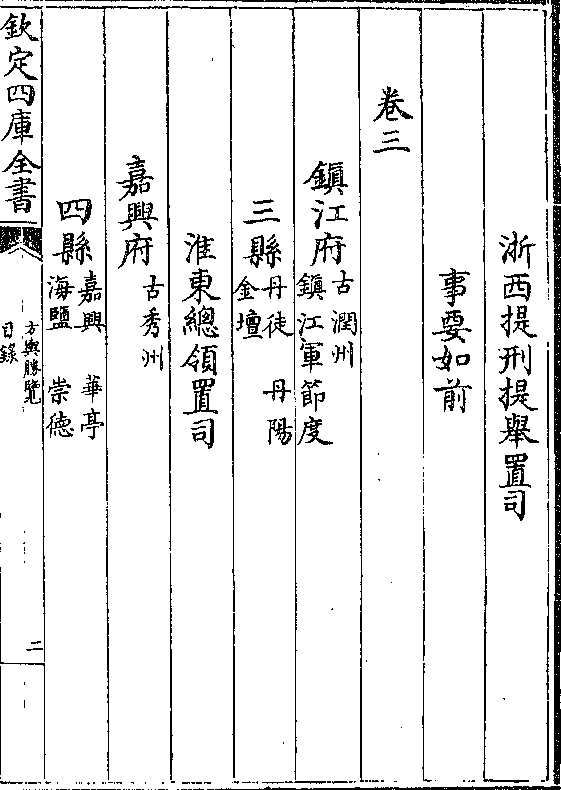 浙西提刑提舉置司
事要如前
卷三
鎮江府 古潤州 鎮江軍節度
三縣 丹徒 丹陽 金壇
淮東總領置司
嘉興府 古秀州
四縣 嘉興 華亭 海鹽 崇德
欽定四庫全書
方輿勝覽
目錄
二